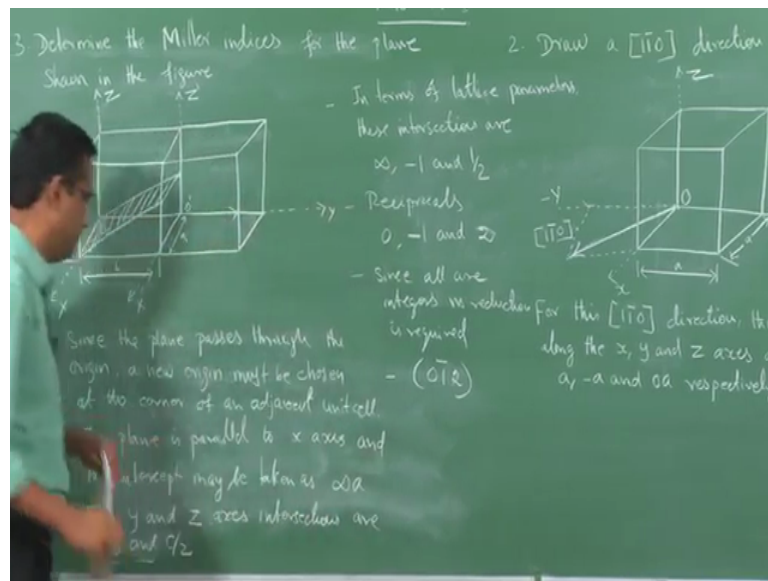 3. Determine the Miller indices for the plane
Shown in the figure
Z
Z'
O'
y
b
a
x
x'
Since the plane passes through the
origin, a new origin must be chosen
at the corner of an adjacent unit cell.
plane is parallel to x axes and
intercept may be taken as ∞a
Y and Z axes intersections are
and c/2
- In terms of lattice parameters,
these intersections are
∞, -1 and 1/2
- Reciprocals
0, -1 and 2
- Since all are
integers no reduction
is required
- (01̅2)
2. Draw a [11̅0] direction
Z
-Y
O
[11̅0]
x
a
a
For this [11̅0] direction, the
along the x, y and z axes
a, -a and 0a respectively